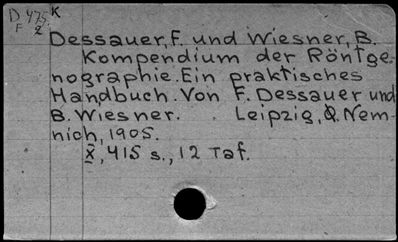 D 475. K
F 2
Dessauer, F. und Wiesner, B.
Kompendium der Röntge-
nographie. Ein praktisches
Handbuch. Von F. Dessauer und
B. Wiesner. Leipzig, O. Nem-
nich, 1905.
X, 415 s., 12 Taf.